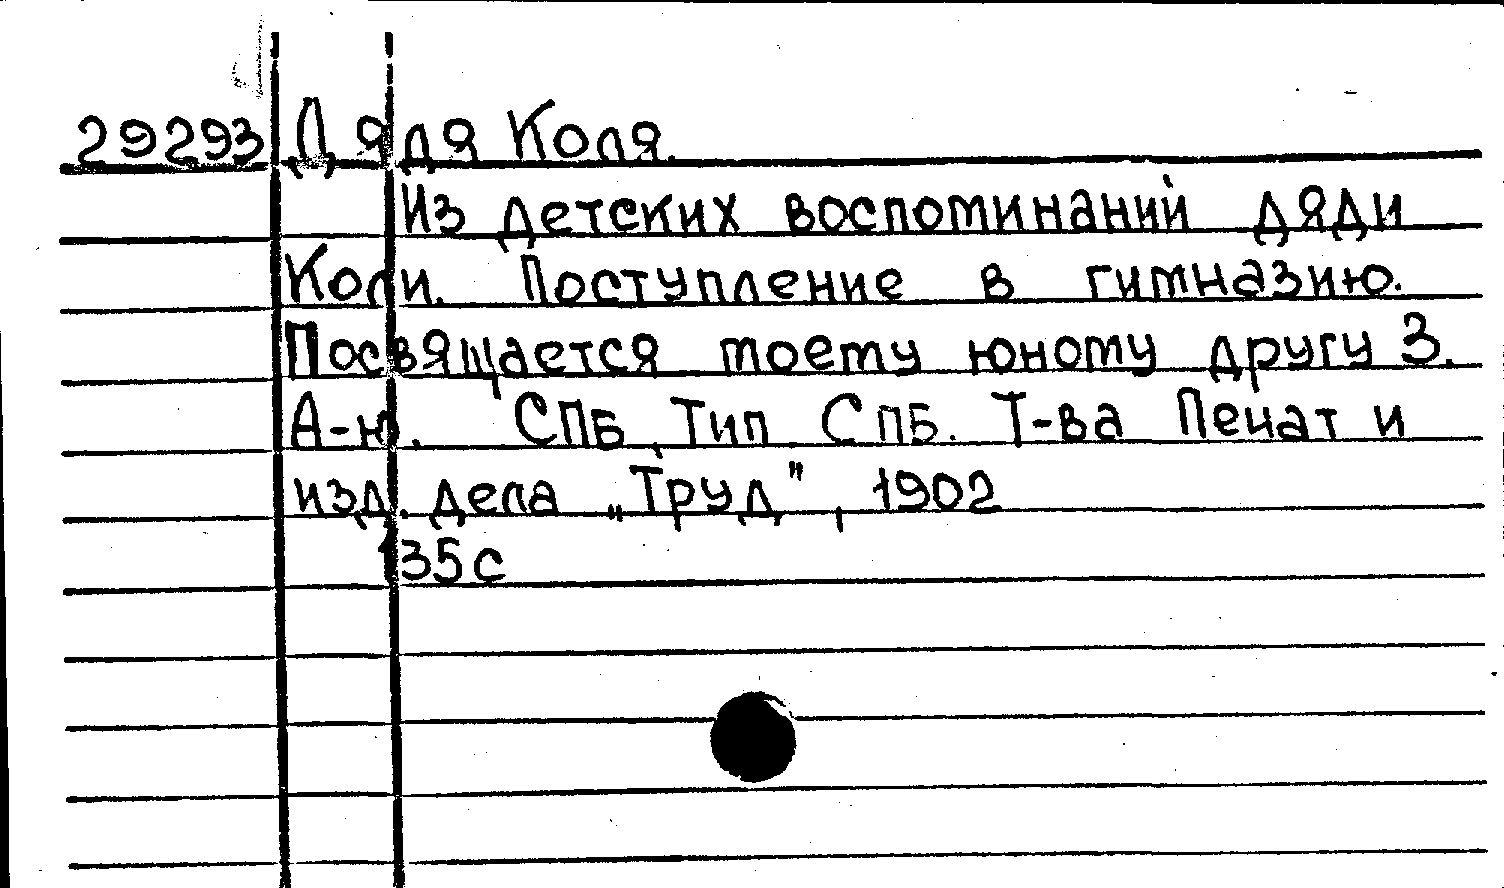 29293 Дядя Коля.
Из детских воспоминаний дяди
Коли. Поступление в гимназию.
Посвящается моему юному другу З.
А-ю. СПБ, Тип. СПБ. Т-ва Печат и
изд. дела „Труд", 1902
35с